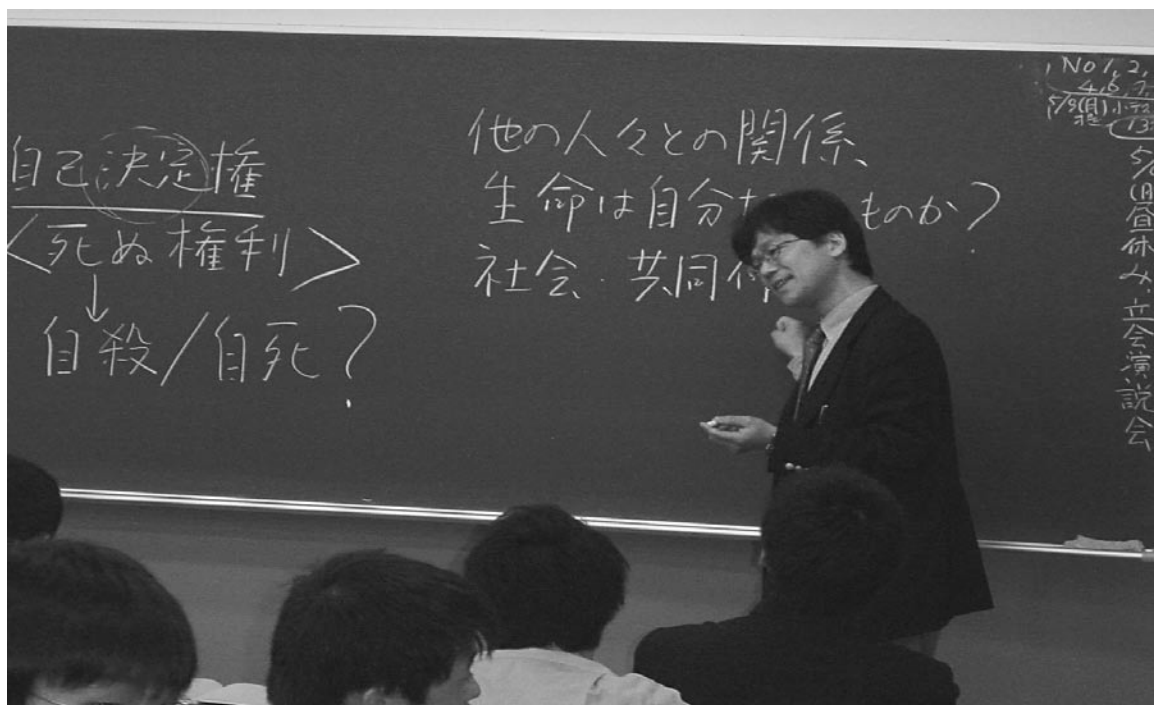 自己決定権
<死ぬ権利>
↓
自殺/自死?
他の人々との関係、
生命は自分 ものか?
社会・共同
No 1, 2,
4, 6, 7,
5/9(月)小テス
13
(月)昼休み、立会演説会